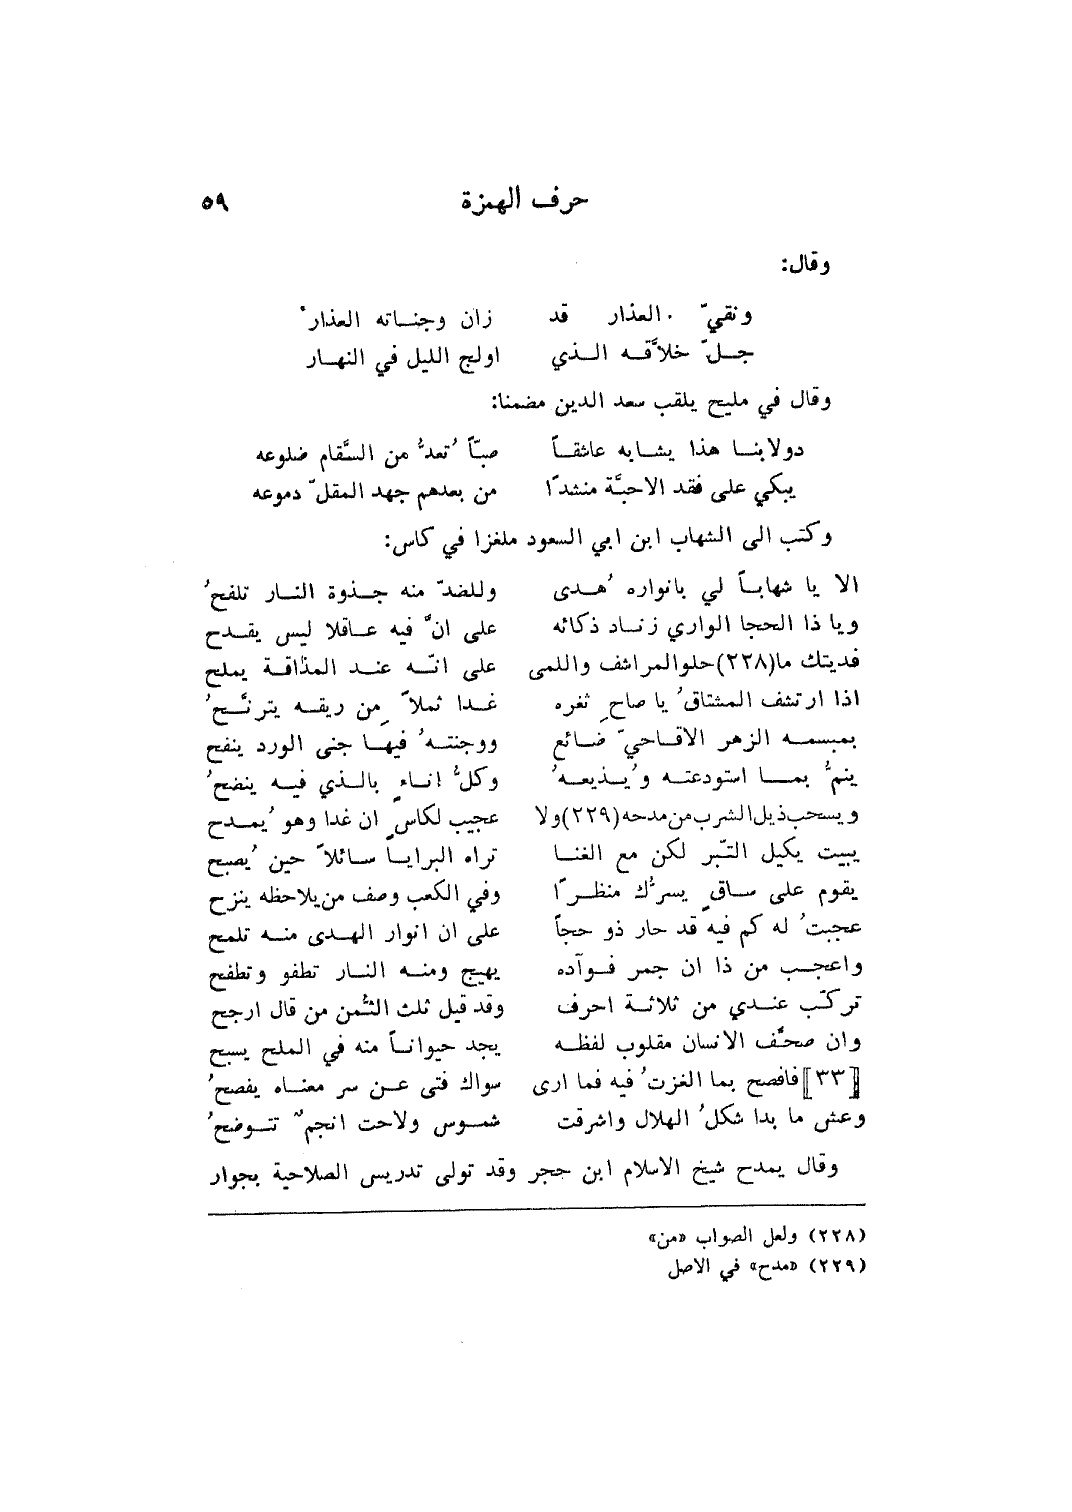 حرف الهمزة ٥٩
وقال:
ونقيّ العذار قد زان وجناته العذارْ
جلّ خلاَّقه الذي اولج الليل في النهار
وقال في مليح يلقب سعد الدين مضمنا:
دولابنا هذا يشابه عاشقاً صبّاً تُعدُّ من السَّقام ضلوعه
يبكي على فقد الاحبَّة منشدًا من بعدهم جهد المقلّ دموعه
وكتب الى الشهاب ابن ابي السعود ملغزا في كاس:
الا يا شهاباً لي بانواره هُدى وللضدّ منه جذوة النار تلفحُ
ويا ذا الحجا الواري زناد ذكائه على انَّ فيه عاقلا ليس يقدح
فديتك ما(٢٢٨)حلو المراشف واللمى على انّه عند المذاقة يملح
اذا ارتشف المشتاقُ يا صاحِ ثغره غدا ثملاً مِن ريقه يترنَّحُ
بمبسمه الزهر الاقاحيّ ضائع ووجنتهُ فيها جنى الورد ينفح
ينمُّ بما استودعته ويُذيعهُ وكلُّ اناءٍ بالذي فيه ينضحُ
ويسحب ذيل الشرب من مدحه(٢٢٩)ولا عجيب لكاسٍ ان غدا وهو يُمدح
يبيت يكيل التّبر لكن مع الغنا تراه البرايا سائلاً حين يُصبح
يقوم على ساقٍ يسرُّك منظرًا وفي الكعب وصف من يلاحظه ينزح
عجبتُ له كم فيه قد حار ذو حجاً على ان انوار الهدى منه تلمح
واعجب من ذا ان جمر فوآده يهيج ومنه النار تطفو وتطفح
تركّب عندي من ثلاثة احرف وقد قيل ثلث الثُمن من قال ارجح
وان صحَّف الانسان مقلوب لفظه يجد حيواناً منه في الملح يسبح
[٣٣]فافصح بما الغزتُ فيه فما ارى سواك فتى عن سر معناه يفصحُ
وعش ما بدا شكلُ الهلال واشرقت شموس ولاحت انجمٌ تتوضحُ
وقال يمدح شيخ الاسلام ابن حجر وقد تولى تدريس الصلاحية بجوار
(٢٢٨) ولعل الصواب «من»
(٢٢٩) «مدح» في الاصل